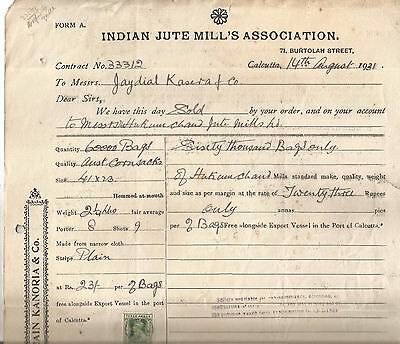 FORM A.
INDIAN JUTE MILL'S ASSOCIATION.
71, BURTOLAH STREET,
Contract No. 33312
Calcutta, 14th August 1931.
To Messrs. Jaydial Kasera & Co
Dear Sirs,
We have this day Sold by your order, and on your account
to Messrs Hukumchand Jute Mills Ld.
Quantity 60000 Bags
Quality Aust Cornsacks
Size 41 x 23
Hemmed at mouth
Weight 2¼ lbs fair average
Porter 8 Shots 9
Made from narrow cloth
Stripe Plain
at Rs. 23/- per % Bags
free alongside Export Vessel in the
Port of Calcutta.*
Sixty thousand Bags only
of Hukumchand Mills standard make, quality, weight
and size as per margin at the rate of Twenty three Rupees
only annas pies
per % Bags Free alongside Export Vessel in the Port of Calcutta.*
AIN KANORIA & Co.